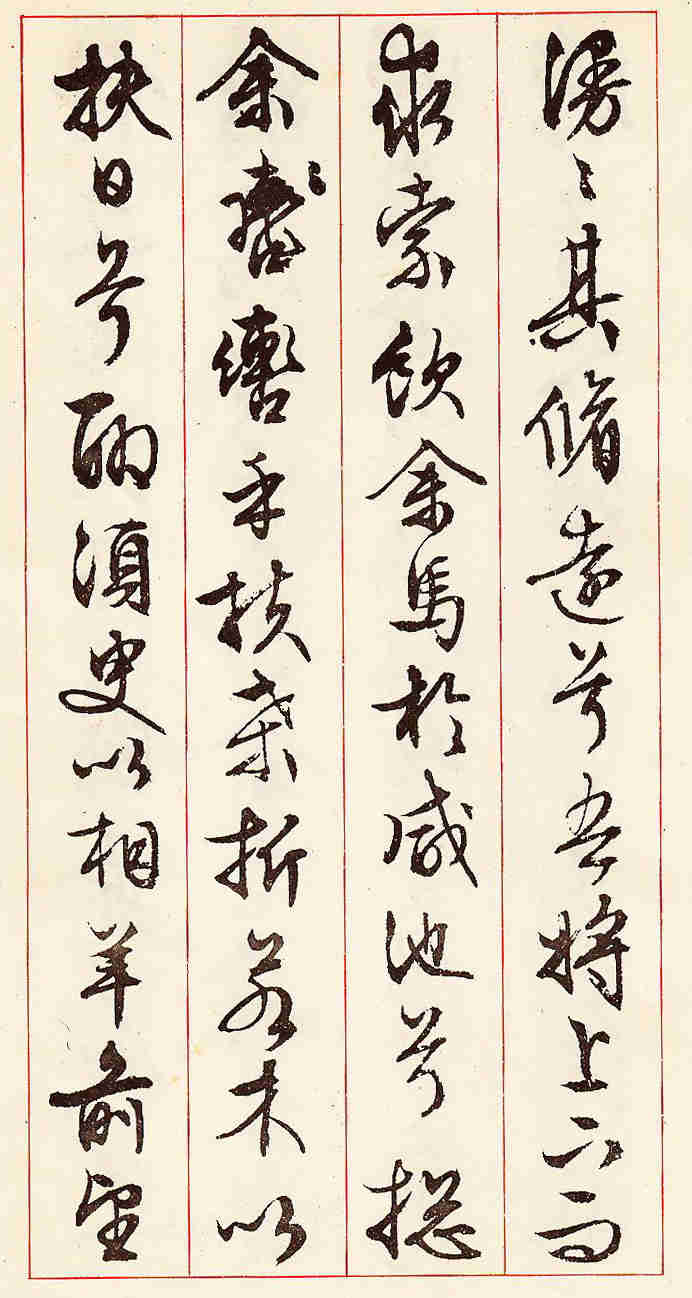 漫〻其脩遠兮吾將上下而
求索飲余馬於咸池兮揔
余轡乎扶桑折若木以
拂日兮聊須臾以相羊前望